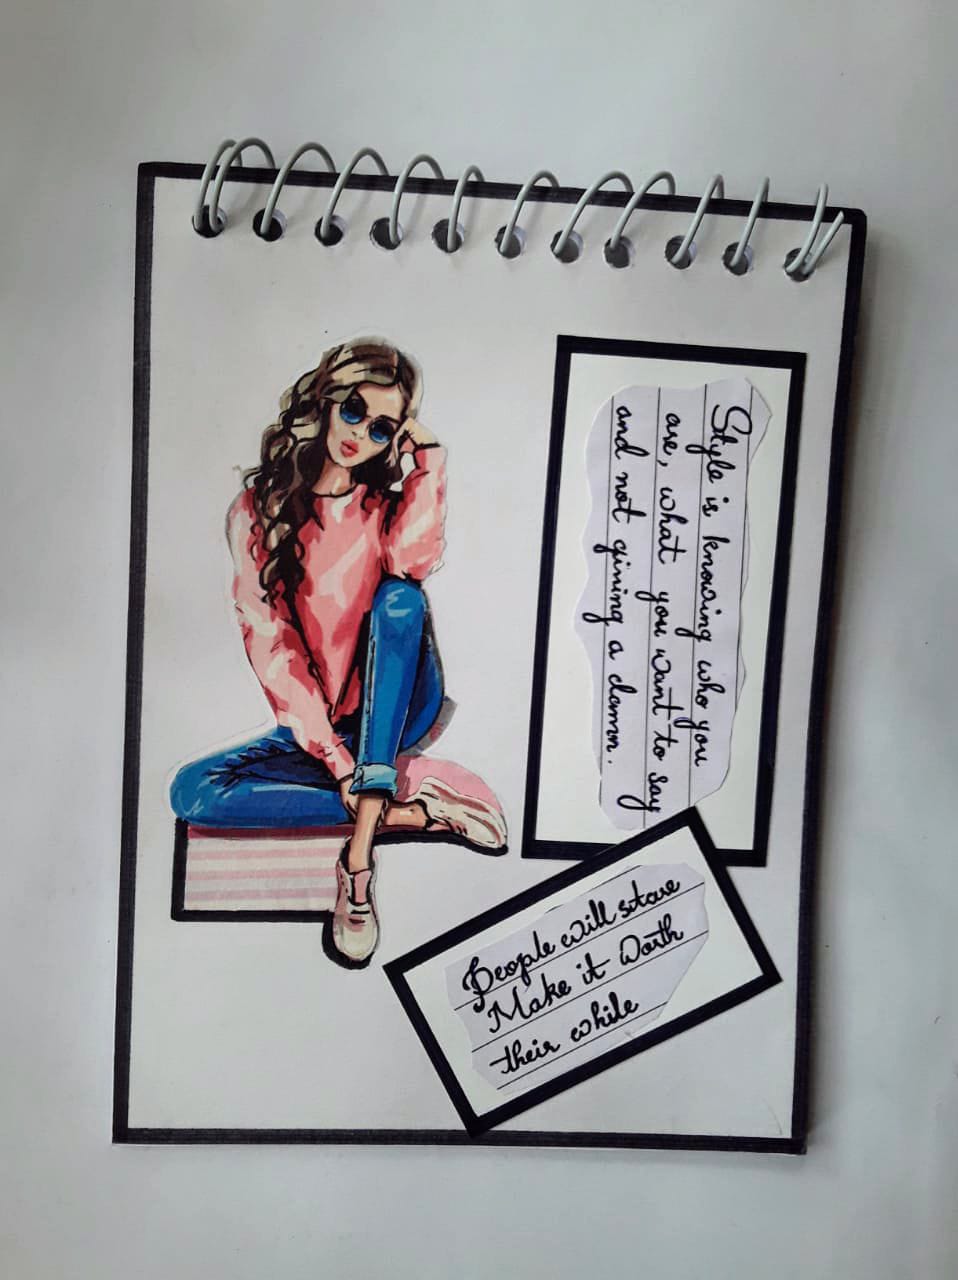 Style is knowing who you
are, what you want to say
and not gining a damn.
People will stare
Make it Worth
their while